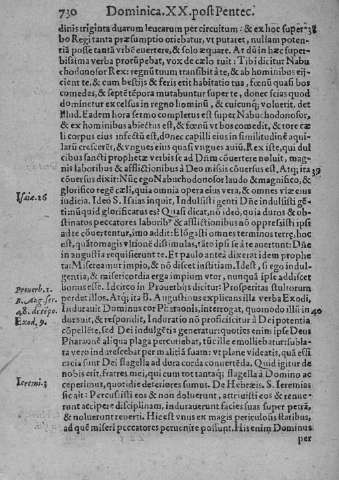 730 Dominica.XX.post Pentec.
dinis triginta duarom leucarum per circuitum: & ex hoc super- 38
bo Regi tanta præsumptio oriebatur, vt putaret, nullam poten-
tiã posse tantã vrbẽ euertere, & solo æquare. At dũ in hæc super-
bissima verba prorũpebat, vox de cælo ruit: Tibi dicitur Nabu
chodonosor Rex: regnũ tuum transibit à te, & ab hominibus eij-
cient te, & cum bestijs & feris erit habitatio tua, fœnũ quasi bos
comedes, & septẽ tẽpora mutabuntur super te, donec scias quod
dominetur excelsus in regno hominũ, & cuicunq; voluerit, det
illud. Eadem hora sermo completus est super Nabuchodonosor,
& ex hominibus abiectus est, & fœnũ vt bos comedit, & rore cæ
li corpus eius infectũ est, donec capilli eius in similitudinẽ aqui-
larũ crescerẽt, & vngues eius quasi vngues auiũ. Rex iste, qui dul
cibus sancti prophetæ verbis se ad Dñm cõuertere noluit, mag-
nis laboribus & afflictionibus à Deo missis cõuersus est. Atq; ita 39
cõuersus dixit: Nũc ego Nabuchodonosor laudo & magnifico, &
glorifico regẽ cæli, quia omnia opera eius vera, & omnes viæ eius
Isaie. 26 iudicia. Ideò S. Isaias inquit, Indulsisti genti Dñe indulsisti gẽ-
ti: nũquid glorificatus es? Quasi dicat, nõ ideò, quia duros & ob-
stinatos peccatores laborib° & afflictionibus nõ oppressisti ipsi
à te cõuertentur, imo addit: Elõgasti omnes terminos terræ, hoc
est, quãto magis vltionẽ dissimulas, tãto ipsi se à te auertunt: Dñe
in angustia requisierunt te. Et paulo antea dixerat idem prophe-
ta: Misereamur impio, & nõ discet iustitiam. Idest, si ego indul-
gentia, & misericordia erga impium vtor, nunquã ipse addiscet
Prouerb. 1. bonus esse. Id circo in Prouerbijs dicitur: Prosperitas stultorum
B. Aug. ser. perdet illos. Atq; ita B. Augustinus explicans illa verba Exodi,
48. de tẽpo. Indurauit Dominus cor Pharaonis, interrogat, quomodo illi in- 40
Exod. 9. durauit, & respondit, Induratio nõ proficiscitur à Dei potentia
cõpellẽte, sed Dei indulgẽtia generatur: quoties enim ipse Deus
Pharaonẽ aliqua plaga percutiebat, tũc ille emolliebatur: subla-
ta vero indurescebat per malitiã suam: vt plane videatis, quã effi
cacia sint Dei flagella ad dura corda conuertẽda. Quid igitur de
nobis erit, fratres mei, qui cum tot tantaq; flagella à Domino ac
Ieremi. 3 ceperimus, quotidie deteriores sumus. De Hebræis, S. Ieremias
sic ait: Percussisti eos & non doluerunt, attriuisti eos & renue-
runt accipere disciplinam, indurauerunt facies suas super petrã,
& noluerunt reuerti. Hic est vnus ex magis periculosis staribus,
ad quẽ miseri peccatores peruenire possunt. His enim Dominus
per